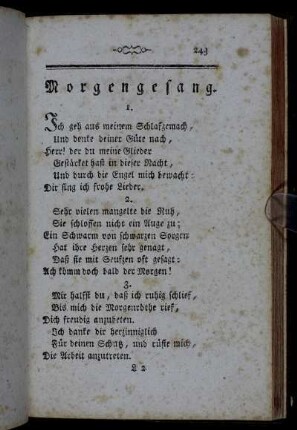 243
Morgengesang.
1.
Ich geh aus meinem Schlafgemach,
Und denke deiner Güte nach,
Herr! der du meine Glieder
Gestärket hast in dieser Nacht,
Und durch die Engel mich bewacht:
Dir sing ich frohe Lieder.
2.
Sehr vielen mangelte die Ruh,
Sie schlossen nicht ein Auge zu;
Ein Schwarm von schwarzen Sorgen
Hat ihre Herzen sehr genagt,
Daß sie mit Seufzen oft gesagt:
Ach kömm doch bald der Morgen!
3.
Mir halfst du, daß ich ruhig schlief,
Bis mich die Morgenröthe rief,
Dich freudig anzubeten.
Ich danke dir herzinniglich
Für deinen Schutz, und rüste mich,
Die Arbeit anzutreten.
L 2